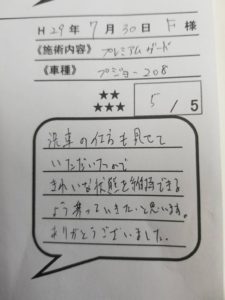 H 29年 7月 30日 F 様
《施術内容》 プレミアムガード
《車種》 プジョー208
★★
★★★ 5 / 5
洗車の仕方も見せて
いただいたので
きれいな状態を維持できる
よう乗っていきたいと思います。
ありがとうございました。